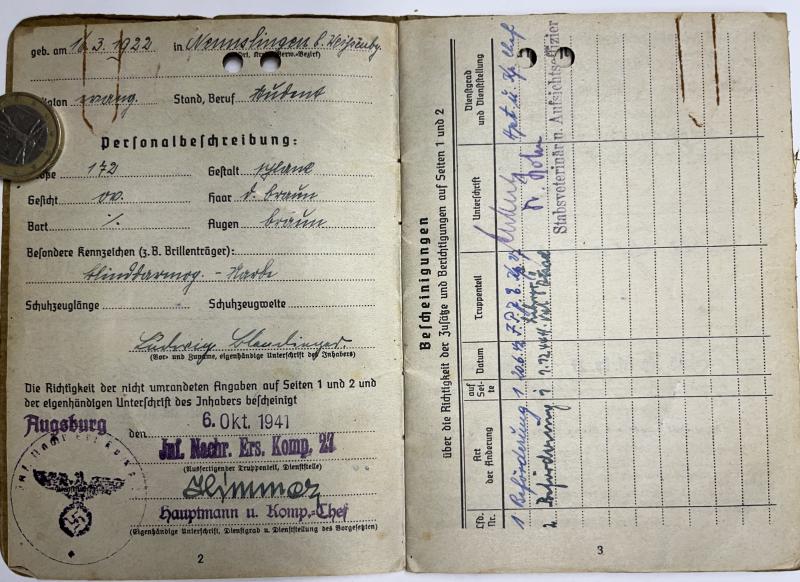 geb. am 16.3.1922 in Nennslingen b. Weißenbg.
(Ort, Kreis, Verw.-Bezirk)
Religion evang. Stand, Beruf Student
Personalbeschreibung:
Größe 172 Gestalt schlank
Gesicht ov. Haar d. braun
Bart ·/. Augen braun
Besondere Kennzeichen (z.B. Brillenträger):
Blinddarmop. - Narbe
Schuhzeuglänge Schuhzeugweite
Ludwig
(Vor- und Zuname, eigenhändige Unterschrift des Inhabers)
Die Richtigkeit der nicht umrandeten Angaben auf Seiten 1 und 2 und
der eigenhändigen Unterschrift des Inhabers bescheinigt
Augsburg den 6. Okt. 1941
Inf. Nachr. Ers. Komp. 27
(Ausfertigender Truppenteil, Dienststelle)
Hauptmann u. Komp.-Chef
(Eigenhändige Unterschrift, Dienstgrad u. Dienststellung des Vorgesetzten)
2
Bescheinigungen
über die Richtigkeit der Zusätze und Berichtigungen auf Seiten 1 und 2
Lfd. Nr. Art der Änderung auf Seite Datum Truppenteil Unterschrift Dienstgrad und Dienststellung
1 Beförderung 1 10.6.42
2 Beförderung 1
Stabsveterinär u. Aufsichtsoffizier
3